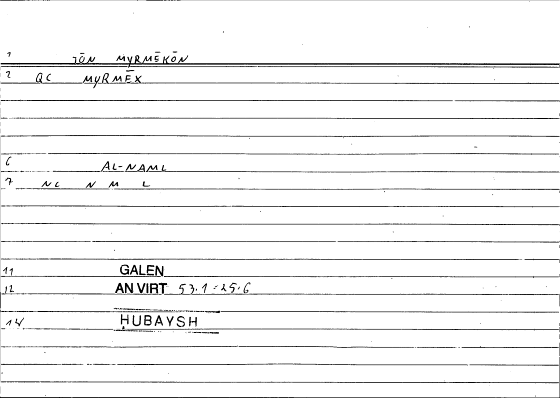 1 TŌN MYRMĒKŌN
2 QC MYRMĒX
6 AL-NAML
7 NC N M L
11 GALEN
12 AN VIRT 53.1 = 25.6
14 HUBAYSH